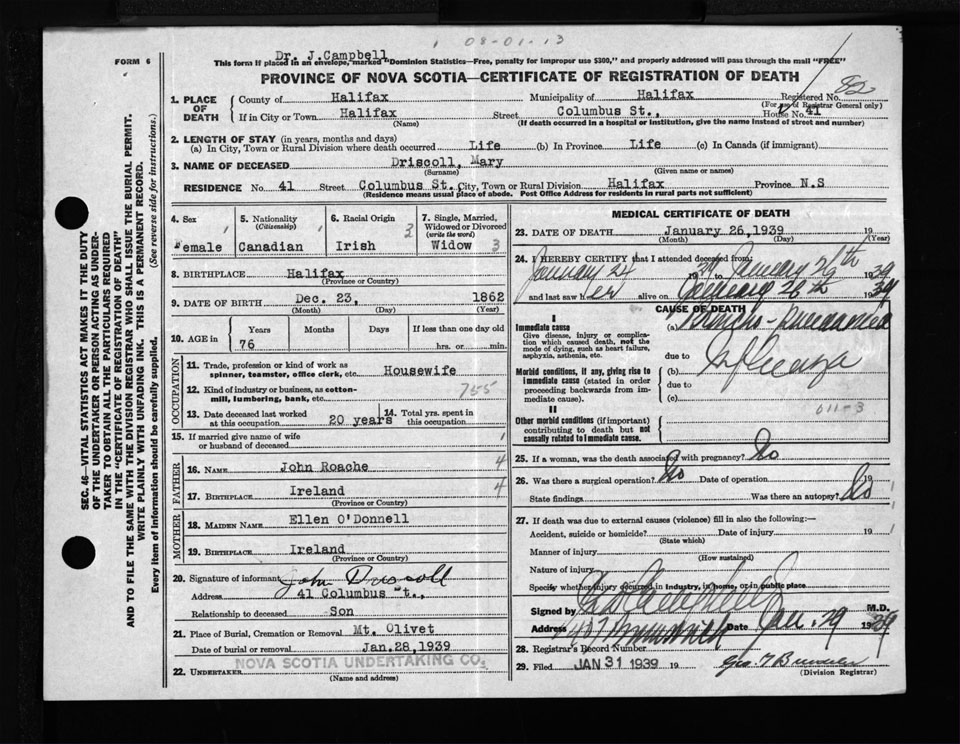 1 08-01-13
Dr. J. Campbell
FORM 6
This form if placed in an envelope, marked "Dominion Statistics—Free, penalty for improper use $300," and properly addressed will pass through the mail "FREE"
PROVINCE OF NOVA SCOTIA—CERTIFICATE OF REGISTRATION OF DEATH
82
1. PLACE OF DEATH { County of Halifax Municipality of Halifax Registered No.
(For use of Registrar General only)
If in City or Town Halifax Street Columbus St., House No. 41
(Name) (If death occurred in a hospital or institution, give the name instead of street and number)
2. LENGTH OF STAY (in years, months and days)
(a) In City, Town or Rural Division where death occurred Life (b) In Province Life (c) In Canada (if immigrant)
3. NAME OF DECEASED Driscoll, Mary
(Surname) (Given name or names)
RESIDENCE No. 41 Street Columbus St. City, Town or Rural Division Halifax Province N.S
(Residence means usual place of abode. Post Office Address for residents in rural parts not sufficient)
SEC. 46—VITAL STATISTICS ACT MAKES IT THE DUTY
OF THE UNDERTAKER OR PERSON ACTING AS UNDER-
TAKER TO OBTAIN ALL THE PARTICULARS REQUIRED
IN THE "CERTIFICATE OF REGISTRATION OF DEATH"
AND TO FILE THE SAME WITH THE DIVISION REGISTRAR WHO SHALL ISSUE THE BURIAL PERMIT.
WRITE PLAINLY WITH UNFADING INK. THIS IS A PERMANENT RECORD.
Every item of information should be carefully supplied. (See reverse side for instructions.)
4. Sex 1 Female
5. Nationality (Citizenship) 1 Canadian
6. Racial Origin 2 Irish
7. Single, Married, Widowed or Divorced (write the word) Widow 3
8. BIRTHPLACE Halifax
(Province or Country)
9. DATE OF BIRTH Dec. 23, 1862
(Month) (Day) (Year)
10. AGE in Years Months Days If less than one day old
76 hrs. or min.
OCCUPATION
11. Trade, profession or kind of work as
spinner, teamster, office clerk, etc. Housewife
12. Kind of industry or business, as cotton-
mill, lumbering, bank, etc. 755
13. Date deceased last worked
at this occupation 20 years 14. Total yrs. spent in this occupation
15. If married give name of wife
or husband of deceased 1
FATHER
16. Name John Roache 4
17. Birthplace Ireland 4
(Province or Country)
MOTHER
18. Maiden Name Ellen O'Donnell
19. Birthplace Ireland
(Province or Country)
20. Signature of informant John Driscoll
Address 41 Columbus St.,
Relationship to deceased Son
21. Place of Burial, Cremation or Removal Mt. Olivet
Date of burial or removal Jan.28,1939
22. UNDERTAKER NOVA SCOTIA UNDERTAKING CO.
(Name and address)
MEDICAL CERTIFICATE OF DEATH
23. DATE OF DEATH January 26,1939 19
(Month) (Day) (Year)
24. I HEREBY CERTIFY that I attended deceased from:
January 24 1939 January 26th 1939
and last saw her alive on January 26th 1939
CAUSE OF DEATH
I
Immediate cause (a) Broncho-pneumonia
Give disease, injury or complication which caused death, not the
mode of dying, such as heart failure, asphyxia, asthenia, etc.
due to
(b) Influenza
Morbid conditions, if any, giving rise to
immediate cause (stated in order
proceeding backwards from immediate cause).
due to
(c)
II
Other morbid conditions (if important)
contributing to death but not
causally related to immediate cause.
011-3
25. If a woman, was the death associated with pregnancy? No
26. Was there a surgical operation? No Date of operation 19
State findings Was there an autopsy? No
27. If death was due to external causes (violence) fill in also the following:—
Accident, suicide or homicide? Date of injury 19
(State which)
Manner of injury
(How sustained)
Nature of injury
Specify whether injury occurred in industry, in home, or in public place
Signed by M.D.
Address Date Jan. 29 1939
28. Registrar's Record Number
29. Filed JAN 31 1939 19
(Division Registrar)